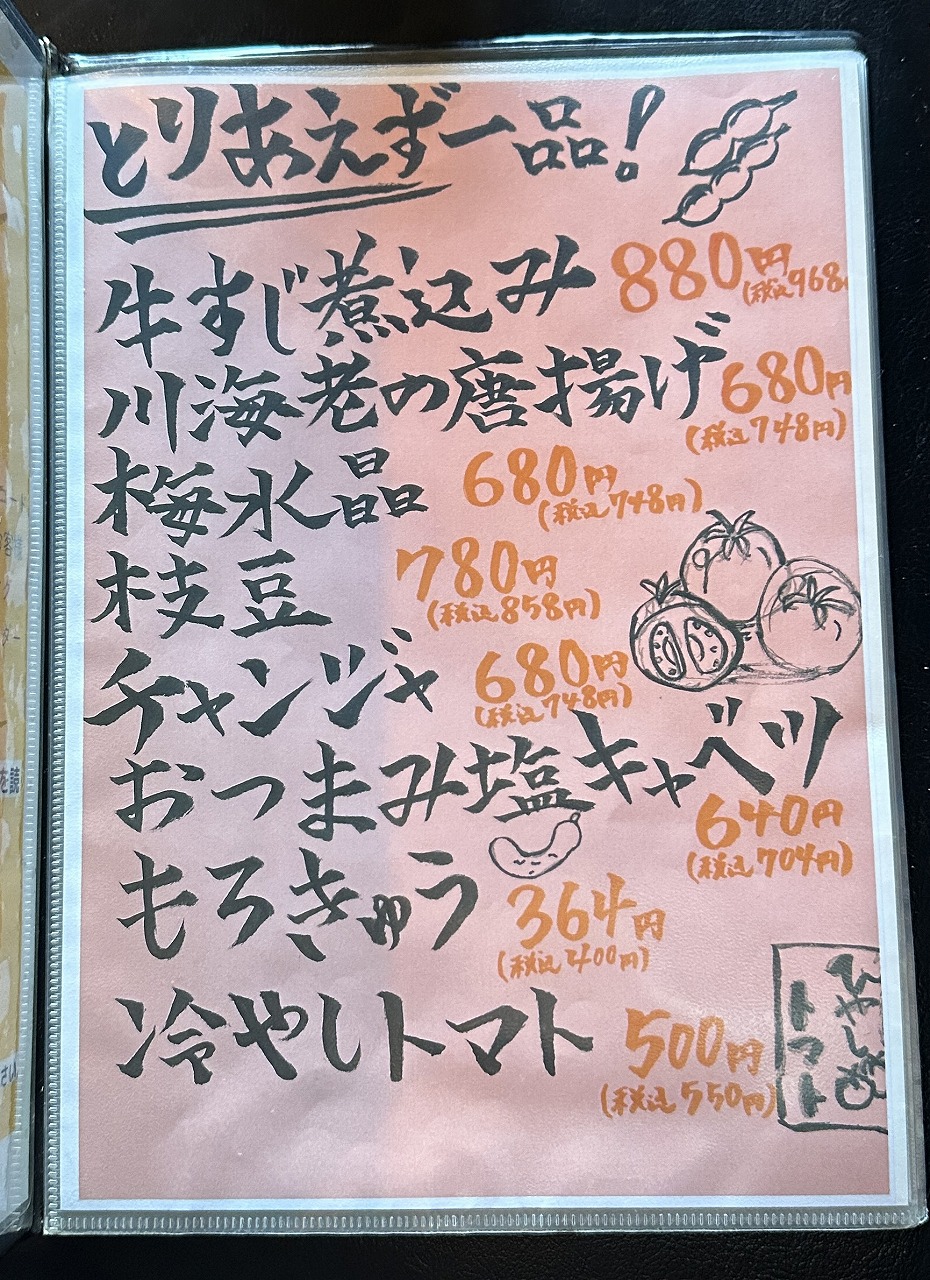 とりあえず一品!
牛すじ煮込み 880円
(税込968
川海老の唐揚げ 680円
(税込748円)
梅水晶 680円
(税込748円)
枝豆 780円
(税込858円)
チャンジャ 680円
(税込748円)
おつまみ塩キャベツ
640円
(税込704円)
もろきゅう 364円
(税込400円)
冷やしトマト 500円
(税込550円)
トマト
を読